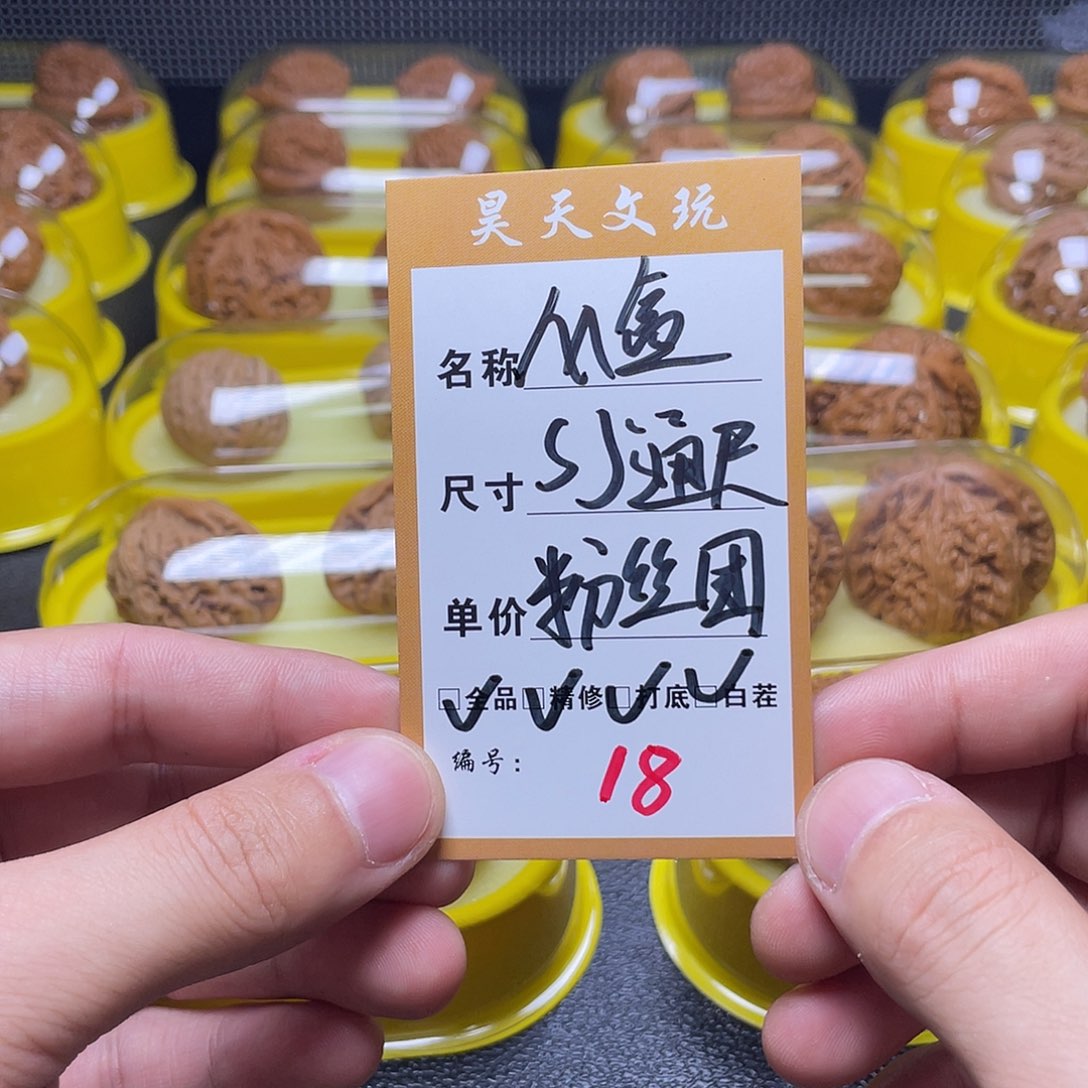 昊天文玩
名称 M盒
尺寸 SJ通尺
单价 粉丝团
☑全品 ☑精修 ☑打底 ☑白茬
编号： 18